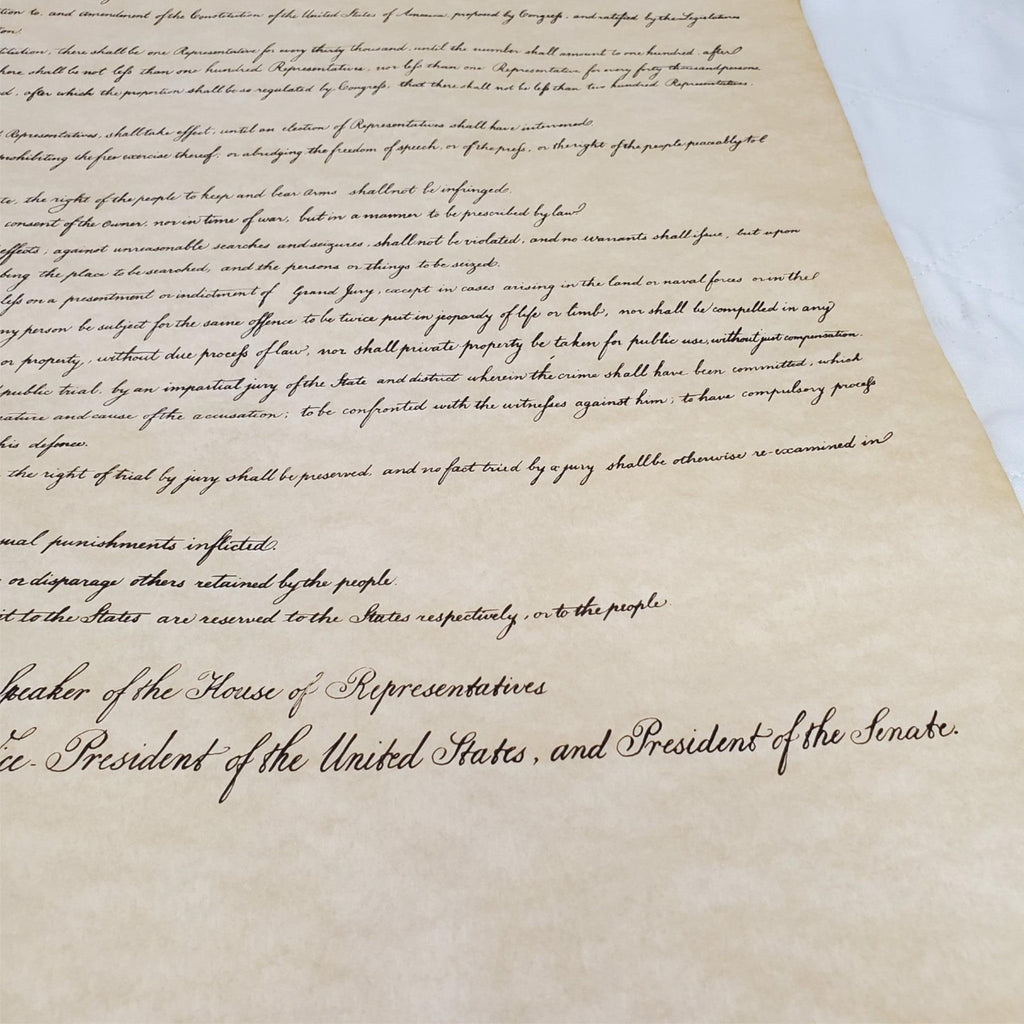 tion to, and amendment of the Constitution of the United States of America, proposed by Congress, and ratified by the Legislatures
tion.
titution, there shall be one Representative for every thirty thousand, until the number shall amount to one hundred, after
here shall be not less than one hundred Representatives, nor less than one Representative for every forty thousand persons
d, after which the proportion shall be so regulated by Congress, that there shall not be less than two hundred Representatives,
d Representatives, shall take effect, until an election of Representatives shall have intervened.
prohibiting the free exercise thereof; or abridging the freedom of speech, or of the press, or the right of the people peaceably to
te, the right of the people to keep and bear arms shall not be infringed.
consent of the owner, nor in time of war, but in a manner to be prescribed by law
effects, against unreasonable searches and seizures, shall not be violated, and no warrants shall issue, but upon
bing the place to be searched, and the persons or things to be seized.
less on a presentment or indictment of Grand Jury, except in cases arising in the land or naval forces or in the
ny person be subject for the same offence to be twice put in jeopardy of life or limb, nor shall be compelled in any
or property, without due process of law, nor shall private property be taken for public use, without just compensation.
public trial, by an impartial jury of the State and district wherein the crime shall have been committed, which
nature and cause of the accusation; to be confronted with the witnesses against him; to have compulsory process
his defence.
the right of trial by jury shall be preserved, and no fact tried by a jury shall be otherwise re-examined in
sual punishments inflicted.
or disparage others retained by the people.
it to the States are reserved to the States respectively, or to the people
Speaker of the House of Representatives
Vice-President of the United States, and President of the Senate.